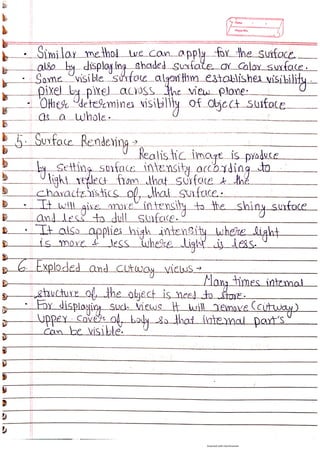 • Similar method we can apply for the surface
also by displaying shaded surface or color surface.
• Some visible surface algorithm establishes visibility
pixel by pixel across the view plane.
• Other determines visibility of object surface
as a whole.
5. Surface Rendering →
Realistic image is produce
by setting surface intensity according to
light reflect from that surface & the
characteristics of, that surface.
• It will give more intensity to the shiny surface
and less to dull surface.
• It also applies high intensity where light
is more & less where light is less.
6. Exploded and cutway views →
Many times internal
structure of the object is need to store.
• For displaying such views it will remove (cutway)
upper cover of, body so that internal part's
can be visible.